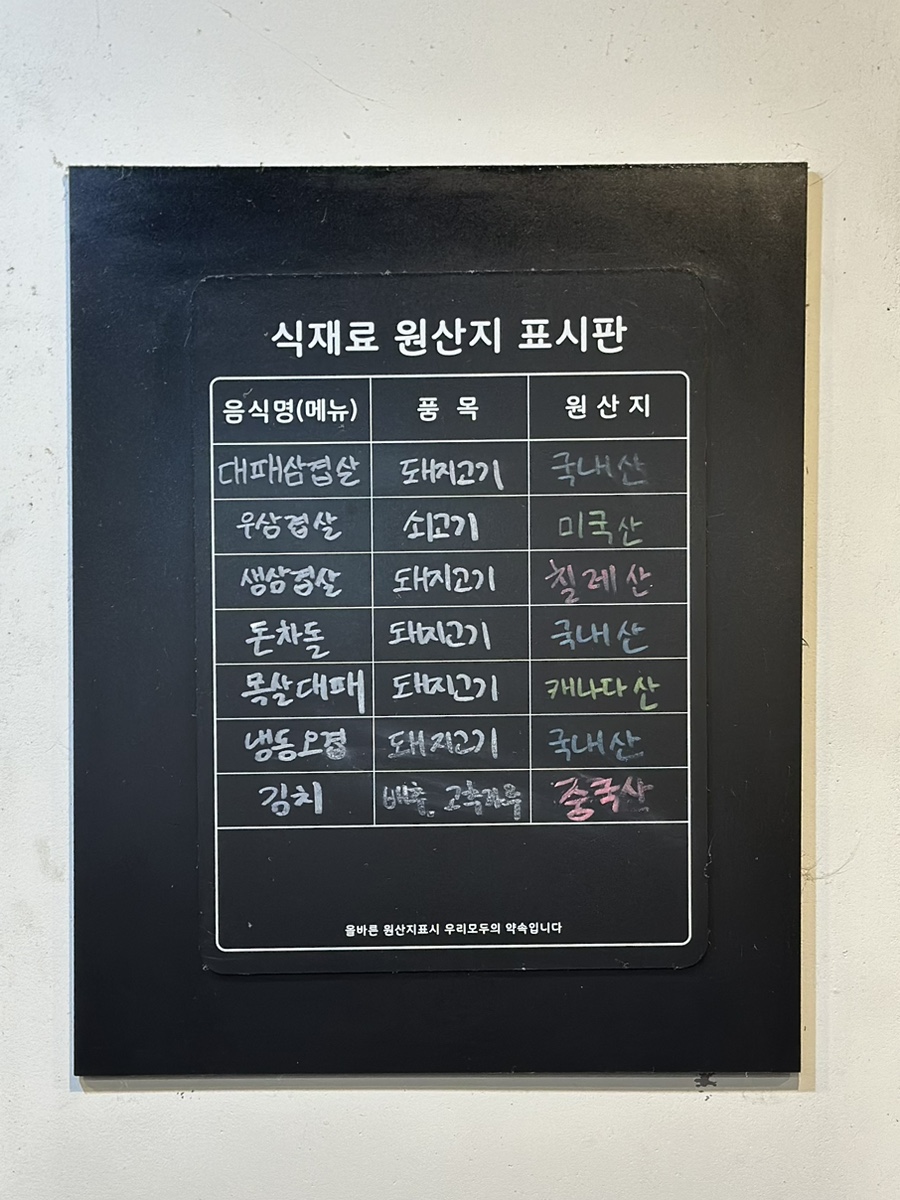 식재료 원산지 표시판
음식명(메뉴) 품 목 원 산 지
대패삼겹살 돼지고기 국내산
우삼겹살 쇠고기 미국산
생삼겹살 돼지고기 칠레산
돈차돌 돼지고기 국내산
목살대패 돼지고기 캐나다산
냉동오겹 돼지고기 국내산
김치 배추, 고추가루 중국산
올바른 원산지표시 우리모두의 약속입니다